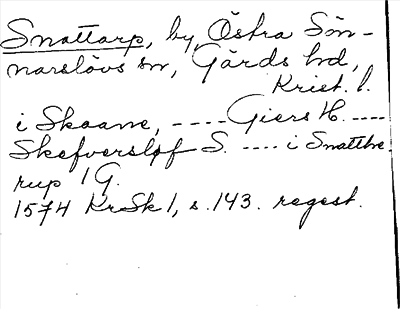 Snattarp, by, Östra Sön-
narslövs sn, Gärds hd,
Krist. l.
i Skaane, ---- Giers H. ----
Skefversløf S. ---- i Snatthe-
rup 1 G.
1574 KrSk 1, s. 143. regest.